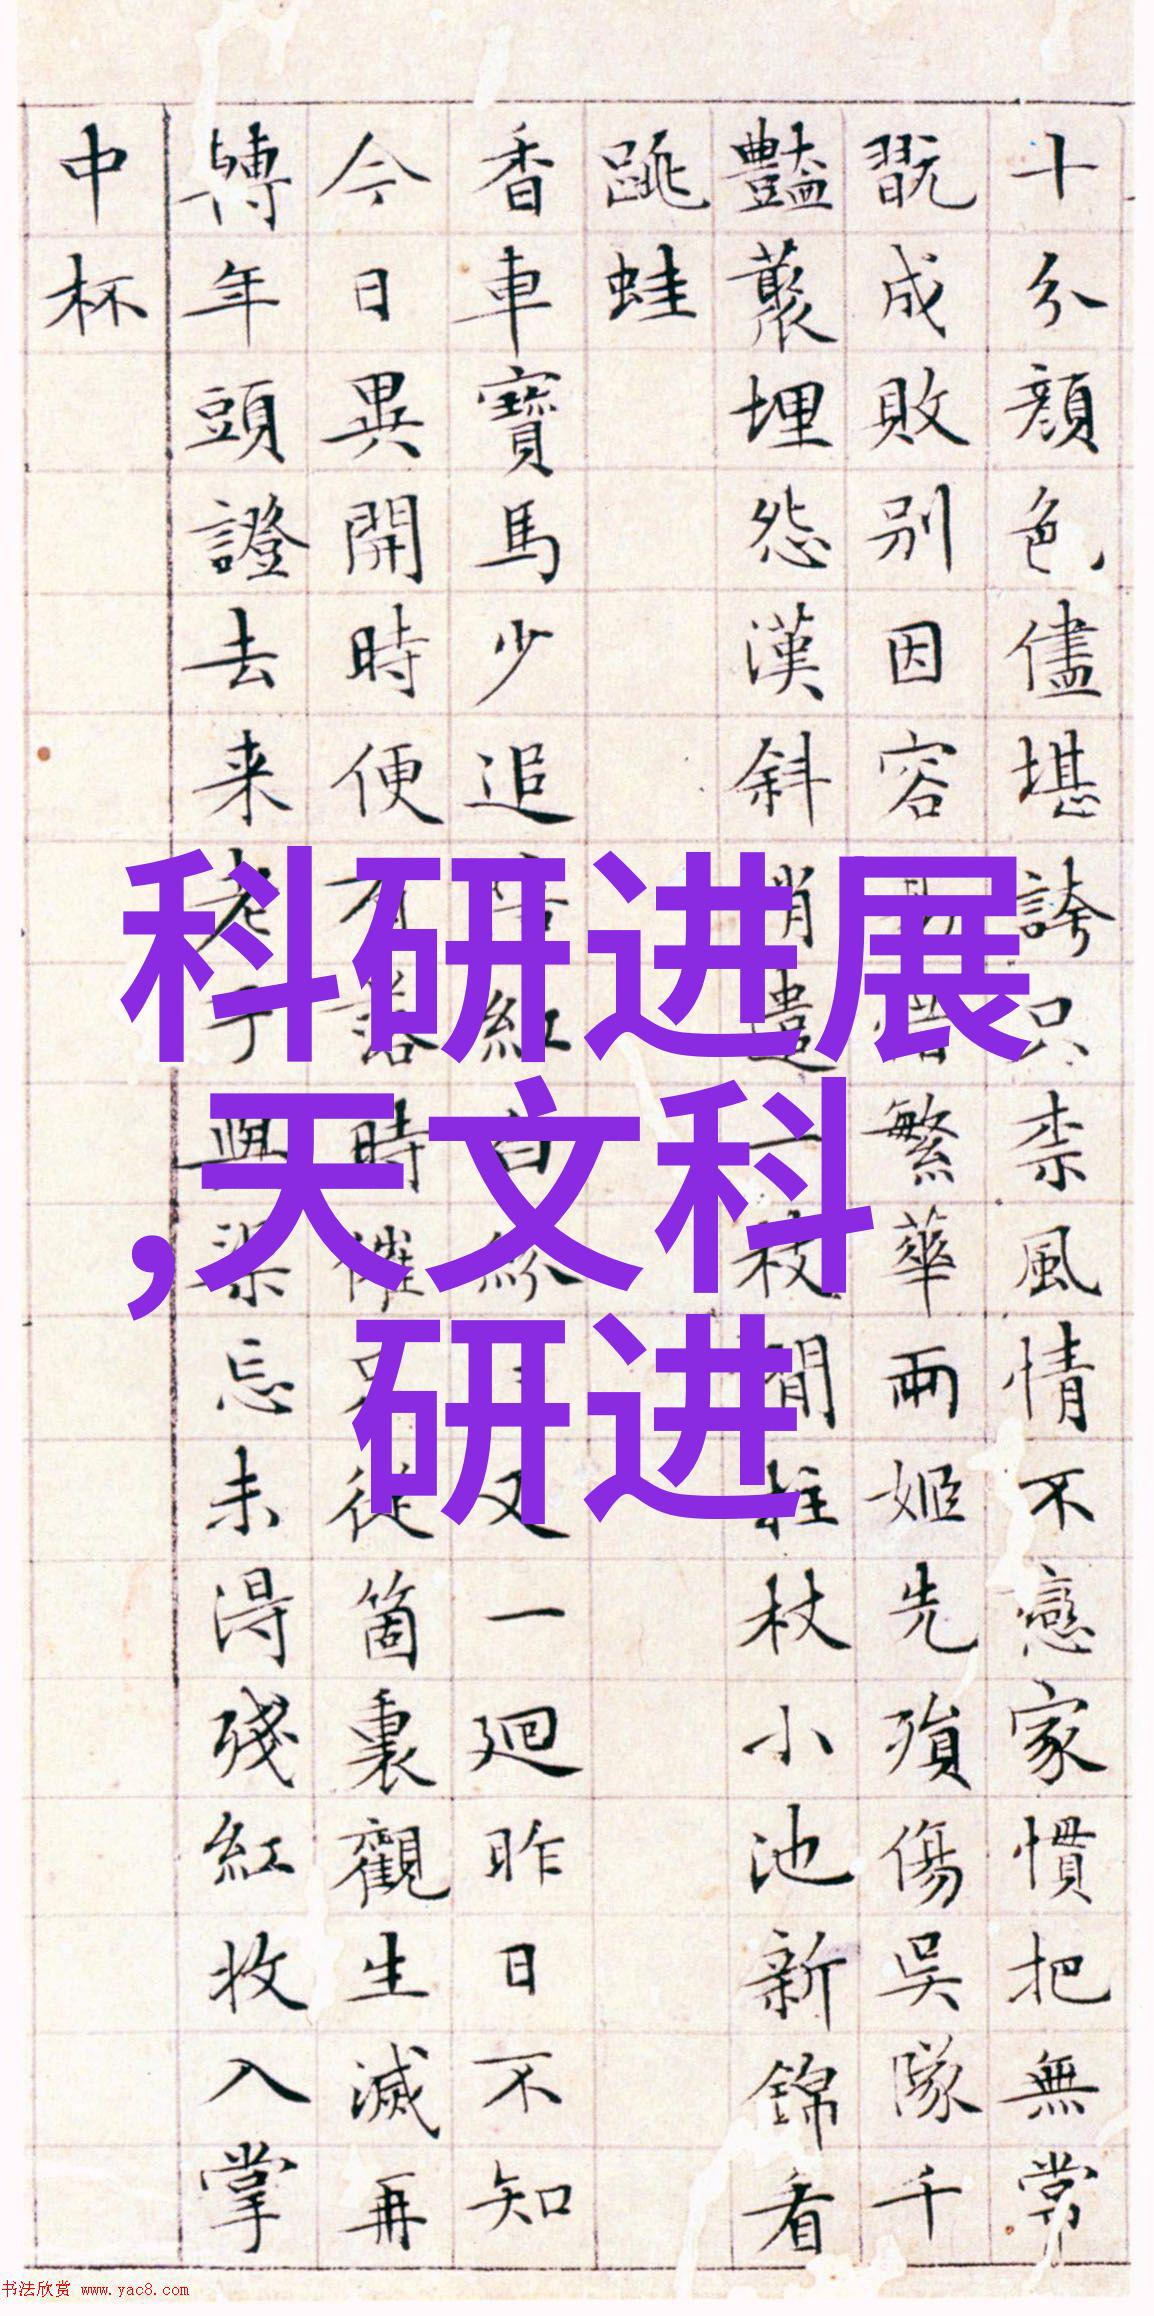 十分顔色儘堪誇只柰風情不戀家慣把無常
翫成敗别因容繁華兩姬先殞傷吳隊千
豔藂埋怨漢斜遣一枝閒拄杖小池新錦看
跳蛙
香車寶馬少追紅白又一廻昨日不知
今日異開時便有落時催從箇裏觀生滅再
轉年頭證去来老忘未淂殘紅收入掌
中杯
科研进展
,天文科
研进
书法欣赏 www.yac8.com